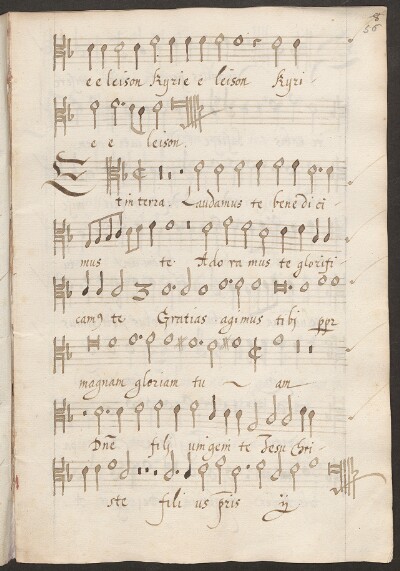 8
56
e e leison Kyrie e leison Kyri-
e e leison.
Et in terra. Laudamus te benedici-
mus te Adoramus te glorifi
cam9 te Gratias agimus tibi ppr
magnam gloriam tu ~ am
Dne fili unigenite Jesu Chri-
ste fili us pris ij